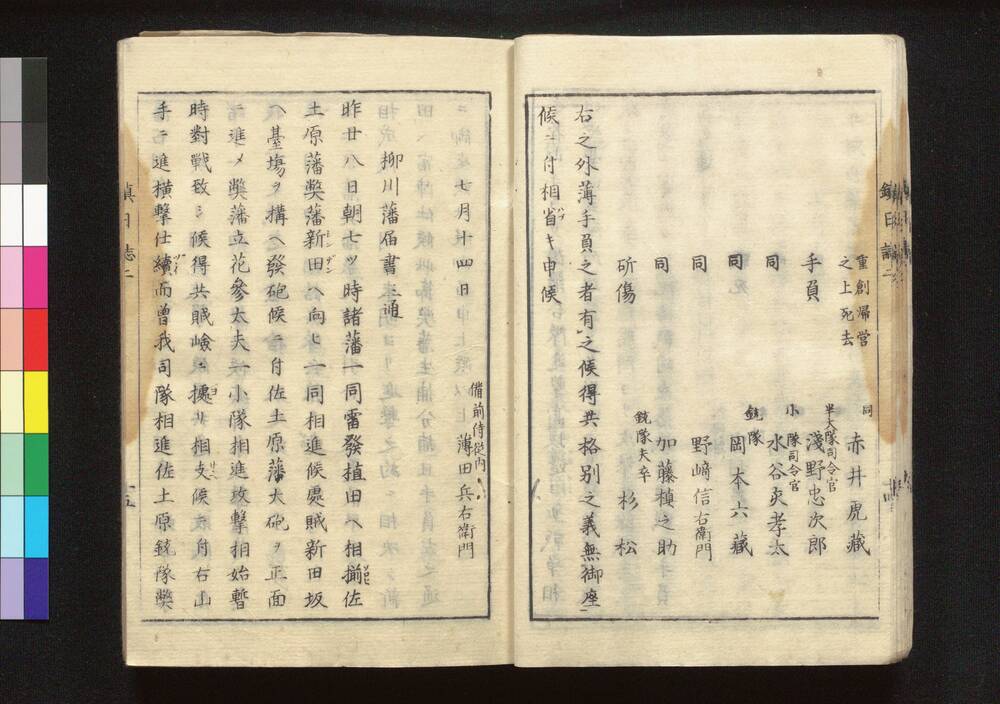 重創帰営
之上死去
同
赤井虎藏
手負
半大隊司令官
淺野忠次郎
同
小隊司令官
水谷孝太
同
銃隊
岡本六藏
同
野﨑信右衛門
同
加藤楨之助
斫傷
銃隊夫卒
杉松
右之外薄手負之者有之候得共格別之義無御座
候ニ付相省キ申候
七月廿四日
備前侍従内
薄田兵右衛門
柳川藩届書三通
昨廿八日朝七ツ時諸藩一同雷發植田ヘ相揃佐
土原藩獘藩新田ヘ向ヒ一同相進候處賊新田坂
ヘ臺場ヲ構ヘ發砲候ニ付佐土原藩大砲ヲ正面
ニ進メ獘藩立花參太夫一小隊相進攻擊相始暫
時對戰致シ候得共賊嶮ニ據リ相支候ニ付右山
手ニ進橫擊仕續而曾我司隊相進佐土原銃隊獘